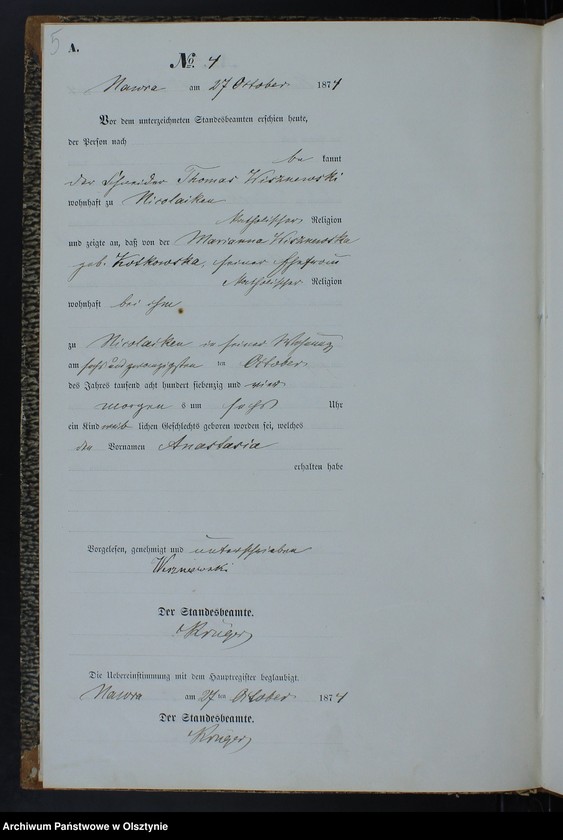 5
A.
No. 4
Nawra am 27 October 1874
Vor dem unterzeichneten Standesbeamten erschien heute,
der Person nach
be kannt
der Schneider Thomas Wisznewski
wohnhaft zu Nicolaiken
katholischer Religion
und zeigte an, daß von der Marianna Wisznewska
geb. Kotkowska, seiner Ehefrau
katholischer Religion
wohnhaft bei ihm
zu Nicolaiken in seiner Wohnung
am sechsundzwanzigsten ten October
des Jahres tausend acht hundert siebenzig und vier
morgen s um sechs Uhr
ein Kind weib lichen Geschlechts geboren worden sei, welches
den Vornamen Anastasia
erhalten habe
Vorgelesen, genehmigt und unterschrieben
Wiszniewski
Der Standesbeamte.
Krüger
Die Uebereinstimmung mit dem Hauptregister beglaubigt.
Nawra am 27 ten October 1874
Der Standesbeamte.
Krüger
Archiwum Państwowe w Olsztynie